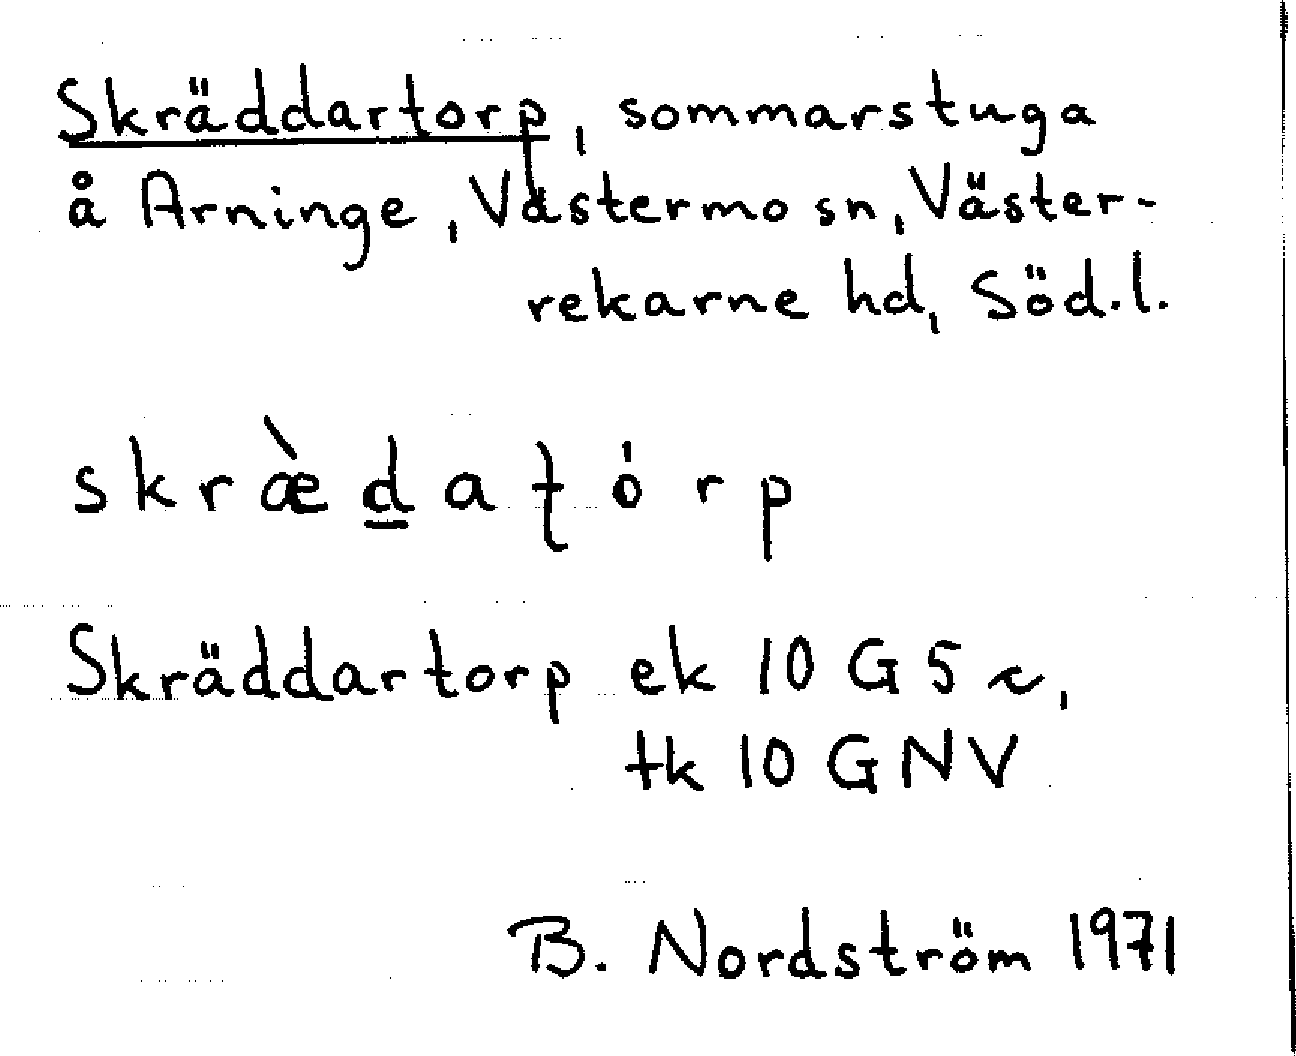 Skräddartorp, sommarstuga
å Arninge, Västermo sn, Väster-
rekarne hd, Söd.l.
skræ̀d̲aʈórp
Skräddartorp ek 10 G 5 c,
tk 10 G NV
B. Nordström 1971